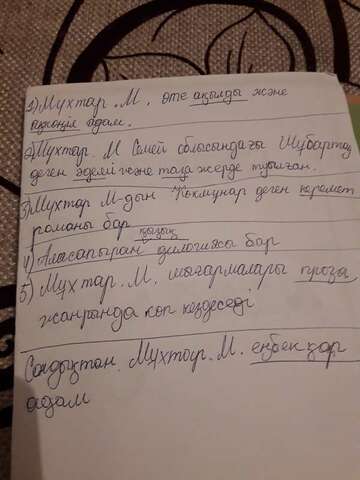 1) Мұхтар. М. өте ақылды және
көңіл адам.
2) Мұхтар. М Семей облысындағы Шұбартау
деген әдемі және таза жерде туылған.
3) Мұхтар М-дын Көкмұнар деген керемет
романы бар
қызық
4) Аласапыран дилогиясы бар
5) Мұхтар. М. шығармалары проза
жанрында көп кездеседі
Сондықтан. Мұхтар. М. еңбекқор
адам